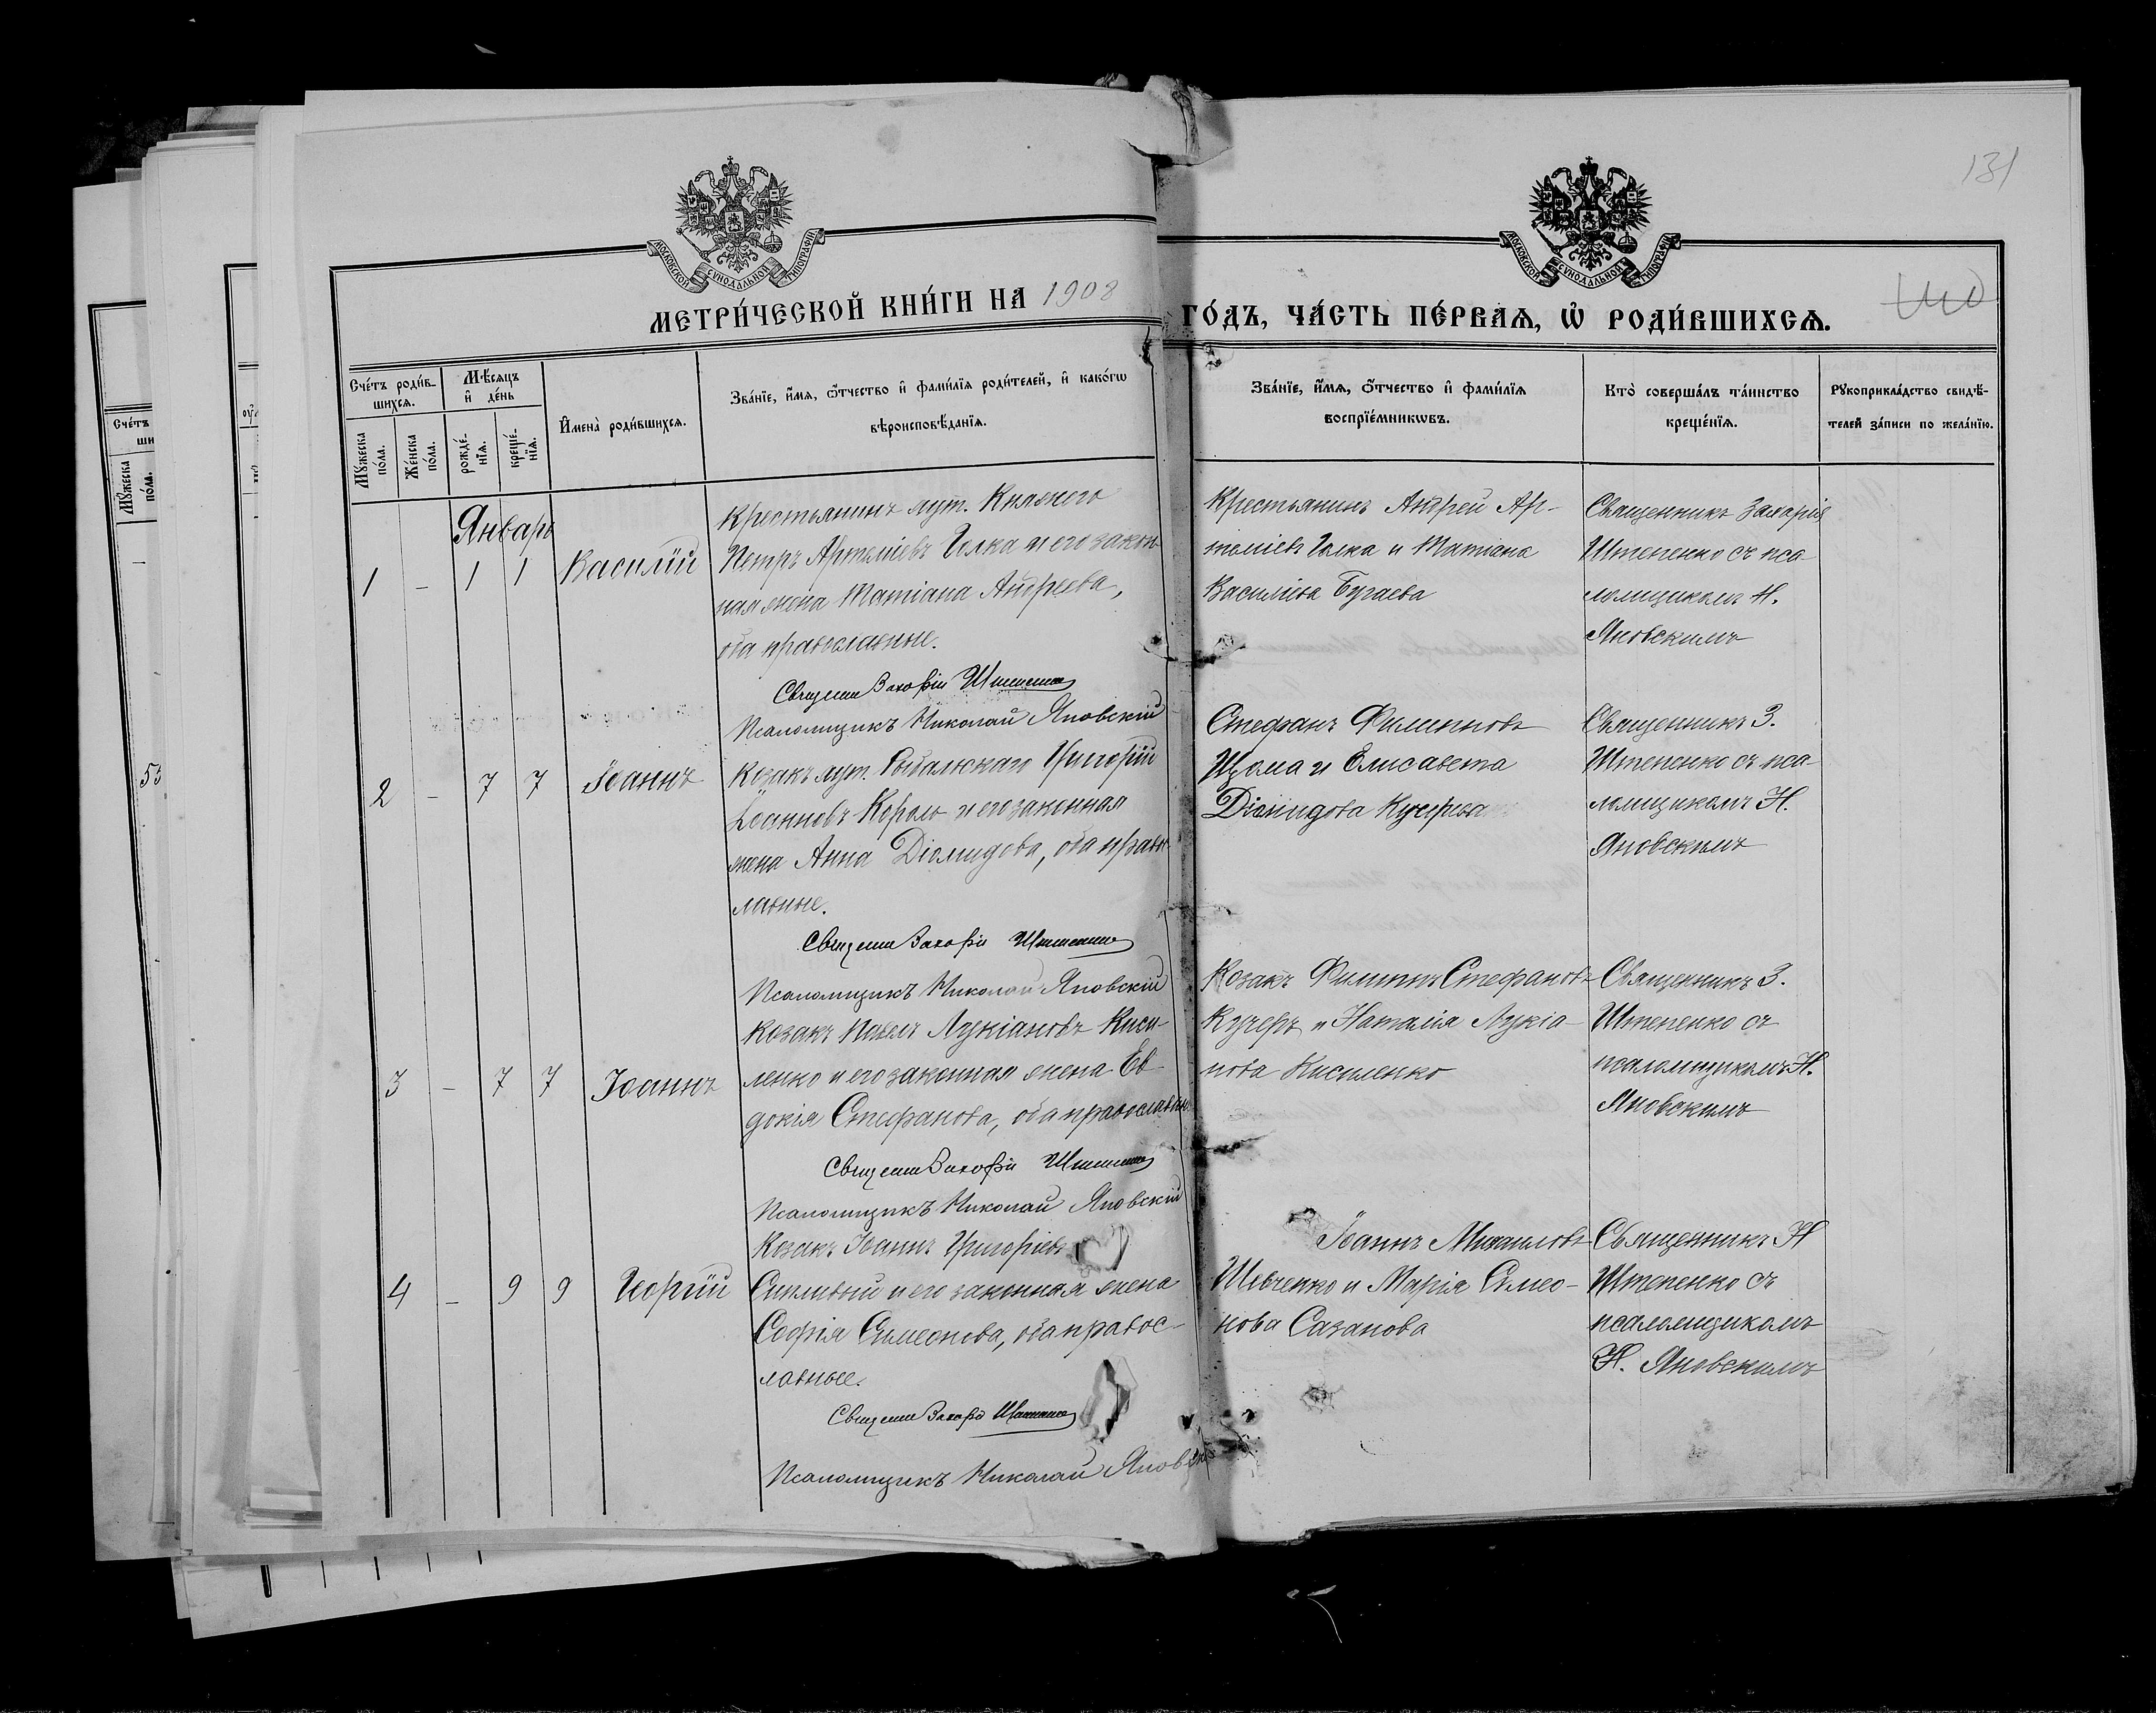 131
МОСКОВСКОЙ СѴНОДАЛЬНОЙ ТИПОГРАФІИ
МОСКОВСКОЙ СѴНОДАЛЬНОЙ ТИПОГРАФІИ
МЕТРИ́ЧЕСКОЙ КНИ́ГИ НА 1908
ГО́ДЪ, ЧА́СТЬ ПЕ́РВАѦ, Ѡ҆ РОДИ́ВШИХСѦ.
Сче́тъ роди́в-
шихсѧ.
Мѣ́сѧцъ
и҆ де́нь
Мꙋ́жеска
по́ла.
Же́нска
по́ла.
рожде́-
нїѧ.
креще́-
нїѧ.
И҆мена̀ роди́вшихсѧ.
Зва́нїе, и҆́мѧ, ѻ҆́тчество и҆ фами́лїѧ роди́телей, и҆ како́гѡ
вѣроисповѣ́данїѧ.
Зва́нїе, и҆́мѧ, ѻ҆́тчество и҆ фами́лїѧ
воспрїе́мникѡвъ.
Кто̀ соверша́лъ та́инство
креще́нїѧ.
Рꙋкоприкла́дство свидѣ́-
телей за́писи по жела́нїю.
Январь
1 - 1 1 Василій
Крестьянинъ хут. Княжего
Петръ Артеміевъ Голка и его закон-
ная жена Татіана Андреева,
оба православные.
Священ Захарій Штепенко
Псаломщикъ Николай Яновскій
Крестьянинъ Андрей Ар-
теміевъ Голка и Татіана
Василіева Бугаева
Священникъ Захарія
Штепенко съ пса-
ломщикомъ Н.
Яновскимъ
2 - 7 7 Іоаннъ
Козакъ хут. Рыбальскаго Григорій
Іоанновъ Король и его законная
жена Анна Діомидова, оба правос-
лавные.
Священ Захарій Штепенко
Псаломщикъ Николай Яновскій
Стефанъ Филипповъ
и Елисавета
Діомидова
Священникъ З.
Штепенко съ пса-
ломщикомъ Н.
Яновскимъ
3 - 7 7 Іоаннъ
Козакъ Павелъ Лукіановъ Киси-
ленко и его законная жена Ев-
докія Стефанова, оба православн
Священ Захарій Штепенко
Псаломщикъ Николай Яновскій
Козакъ Филиппъ Стефановъ
Кучеръ и Наталія Лукіа-
нова Кисиленко
Священникъ З.
Штепенко съ
псаломщикомъ Н.
Яновскимъ
4 - 9 9 Георгій
Козакъ Іоаннъ Григоріевъ
и его законная жена
Софія Симеонова, оба правос-
лавные.
Священ Захарій Штепенко
Псаломщикъ Николай Яновск
Іоаннъ Михаиловъ
Шевченко и Марія Симео-
нова Сазанова
Священникъ Н
Штепенко съ
псаломщикомъ
Н. Яновскимъ
Сче́тъ
ши
Мꙋ́жеска
по́ла.
53